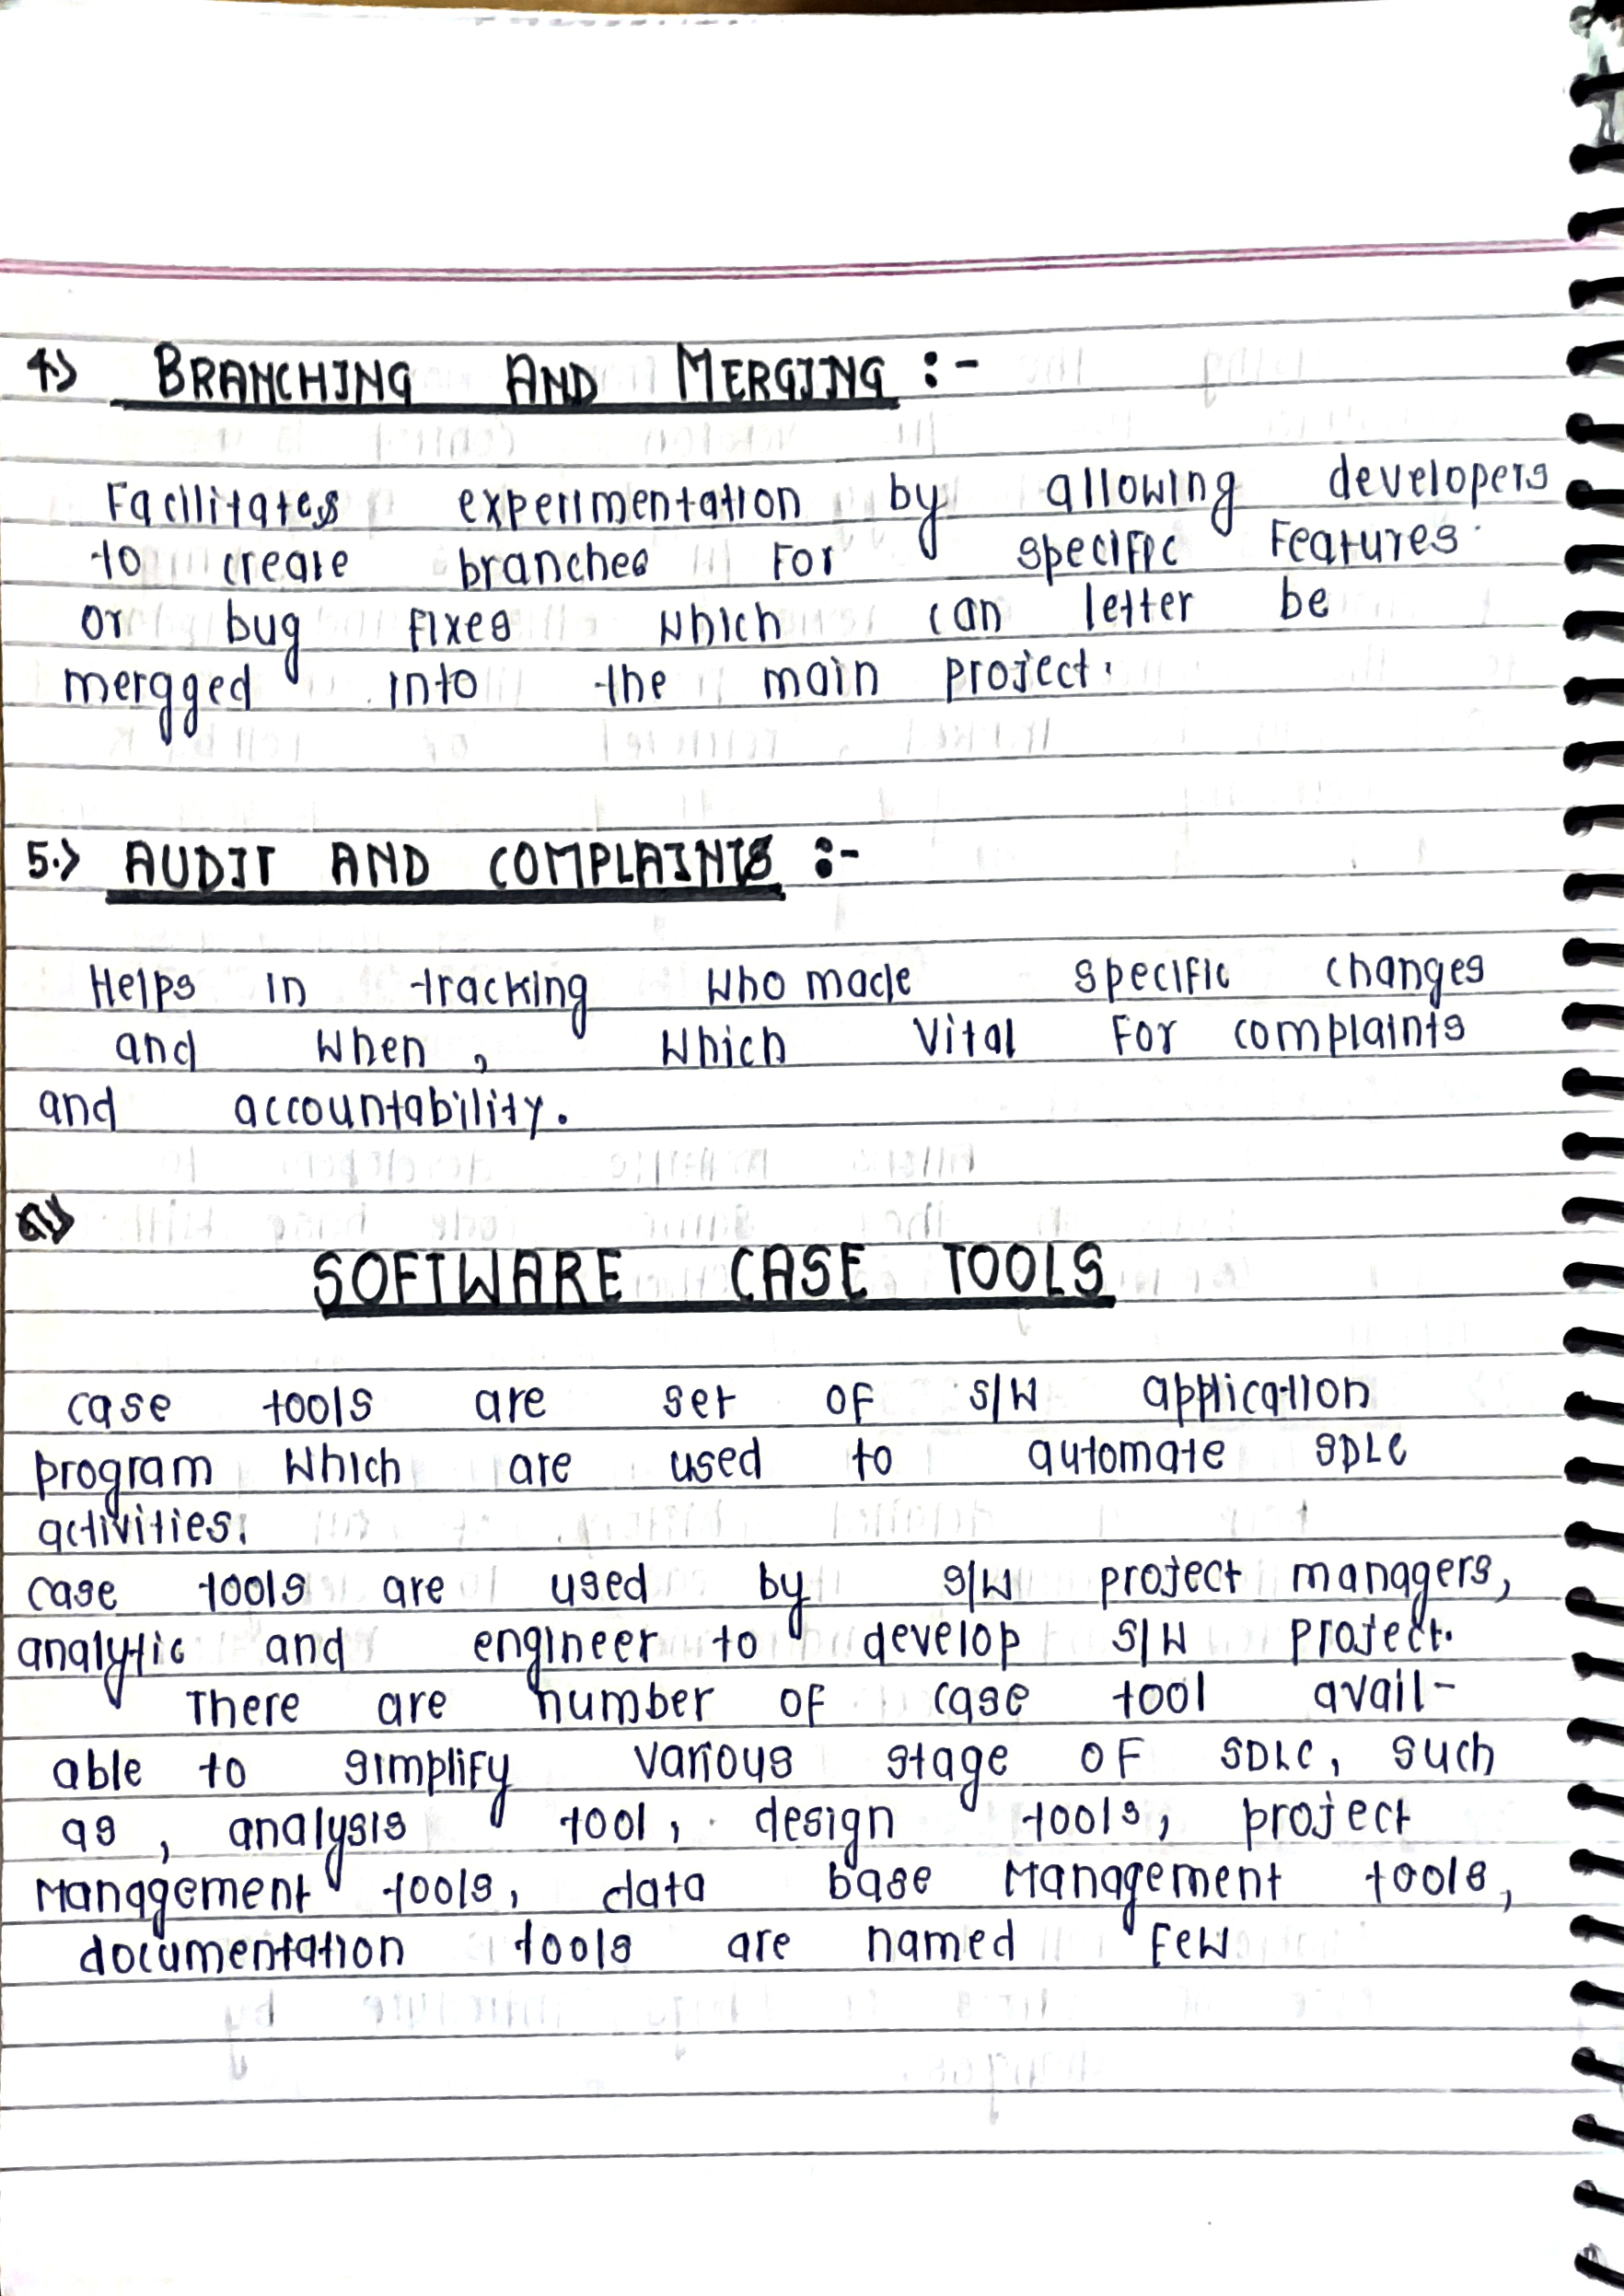 4.> BRANCHING AND MERGING :-
Facilitates experimentation by allowing developers
to create branches For specific Features
or bug Fixes which can letter be
mergged into the main project.
5.> AUDIT AND COMPLAINTS :-
Helps in tracking who made specific changes
and when, which vital For complaints
and accountability.
SOFTWARE CASE TOOLS
case tools are set OF S/W application
program which are used to automate SDLC
activities.
case tools are used by S/W project managers,
analytic and engineer to develop S/W project.
There are number OF case tool avail-
able to simplify various stage OF SDLC, such
as, analysis tool, design tools, project
Management tools, data base Management tools,
documentation tools are named Few